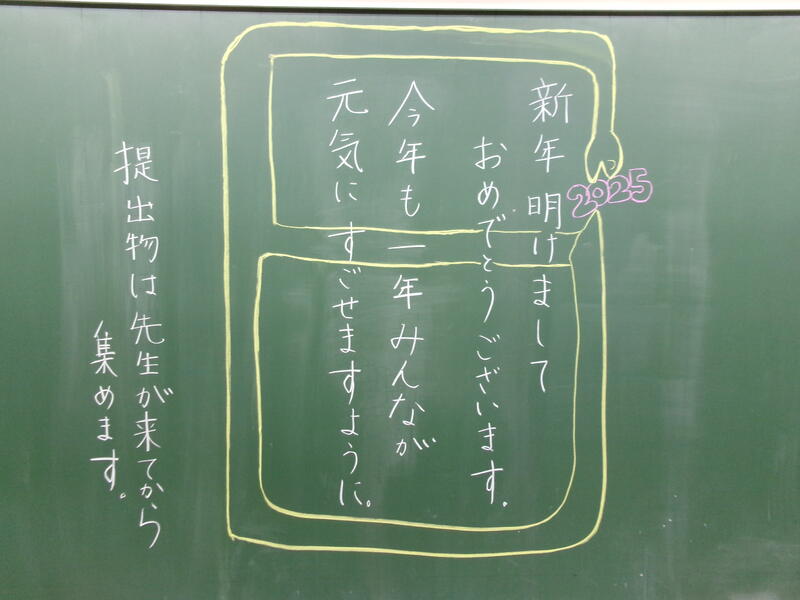 新年明けまして
おめでとうございます。
2025
今年も一年みんなが
元気にすごせますように。
提出物は先生が来てから
集めます。